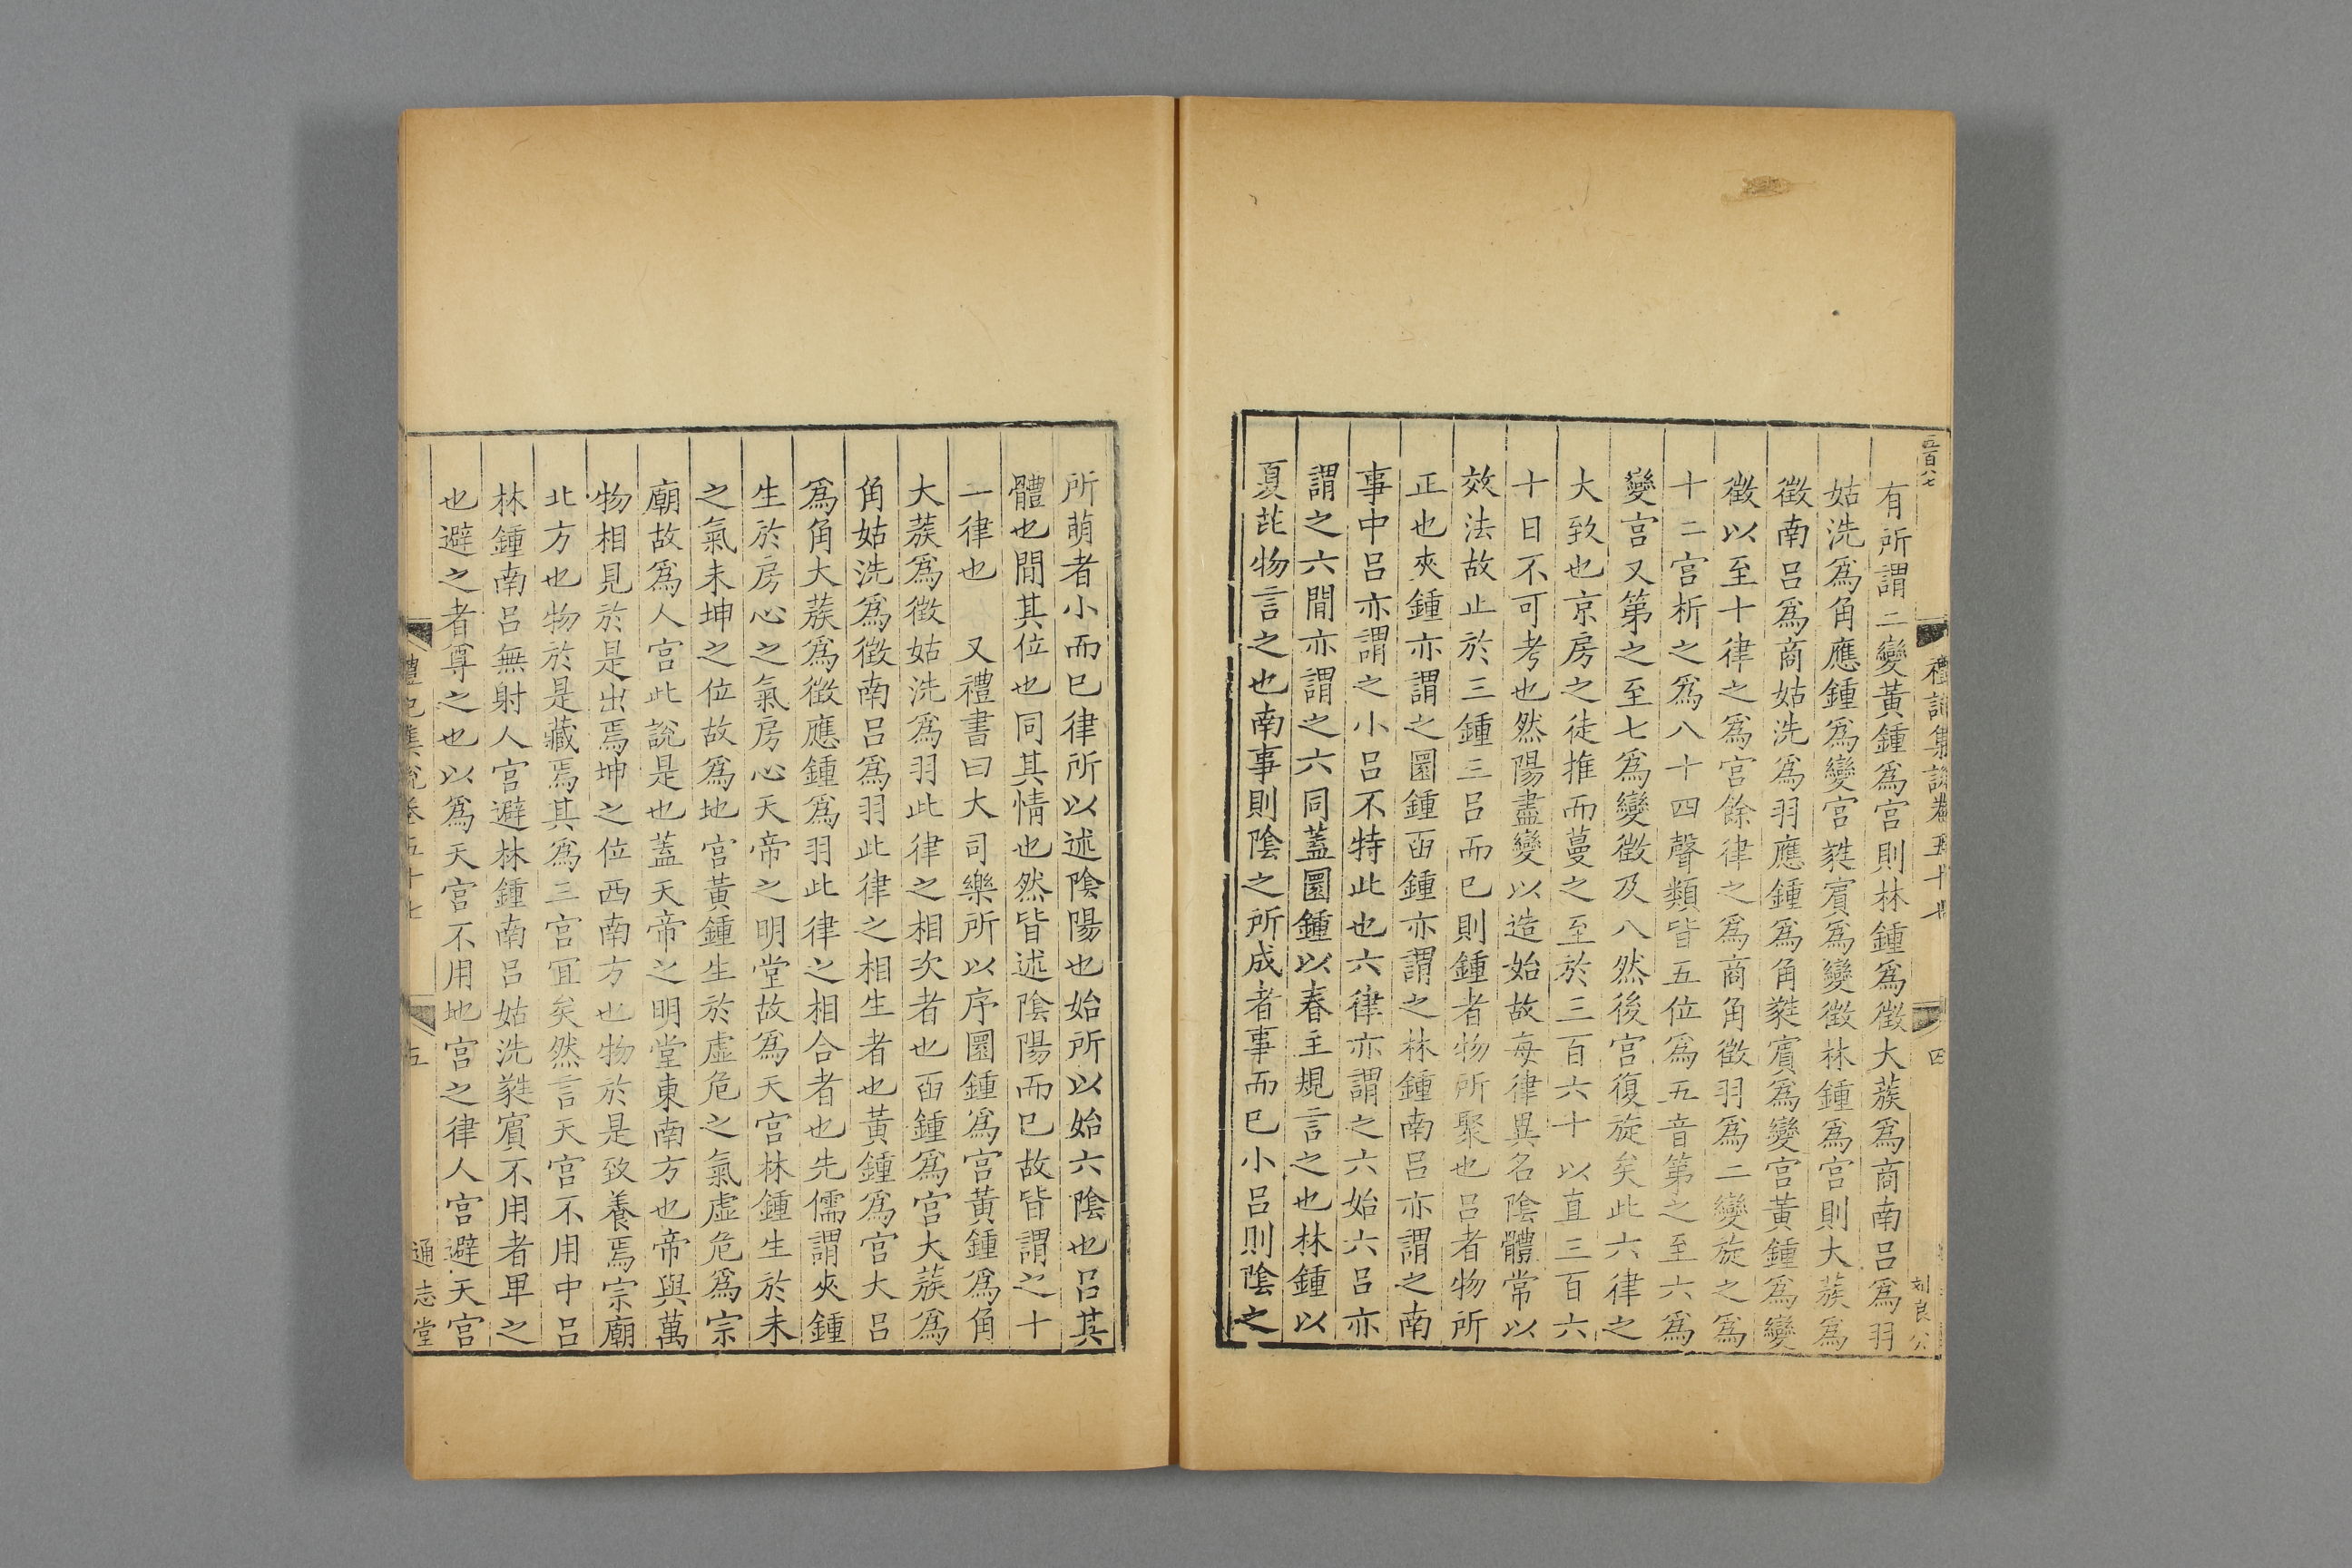 五百八七
禮記集說卷五十七
四
刘良公
有所謂二變黃鍾爲宮則林鍾爲徵大蔟爲商南呂爲羽
姑洗爲角應鍾爲變宮蕤賓爲變徵林鍾爲宮則大蔟爲
徵南呂爲商姑洗爲羽應鍾爲角蕤賓爲變宮黃鍾爲變
徵以至十律之爲宮餘律之爲商角徵羽爲二變旋之爲
十二宮析之爲八十四聲類皆五位爲五音第之至六爲
變宮又第之至七爲變徵及八然後宮復旋矣此六律之
大致也京房之徒推而蔓之至於三百六十以直三百六
十日不可考也然陽盡變以造始故每律異名陰體常以
效法故止於三鍾三呂而已則鍾者物所聚也呂者物所
正也夾鍾亦謂之圜鍾𠚏鍾亦謂之林鍾南呂亦謂之南
事中呂亦謂之小呂不特此也六律亦謂之六始六呂亦
謂之六間亦謂之六同蓋圜鍾以春主規言之也林鍾以
夏芘物言之也南事則陰之所成者事而已小呂則陰之
所萌者小而已律所以述陰陽也始所以始六陰也呂其
體也間其位也同其情也然皆述陰陽而已故皆謂之十
一律也　又禮書曰大司樂所以序圜鍾爲宮黃鍾爲角
大蔟爲徵姑洗爲羽此律之相次者也𠚏鍾爲宮大蔟爲
角姑洗爲徵南呂爲羽此律之相生者也黃鍾爲宮大呂
爲角大蔟爲徵應鍾爲羽此律之相合者也先儒謂夾鍾
生於房心之氣房心天帝之明堂故爲天宮林鍾生於未
之氣未坤之位故爲地宮黃鍾生於虛危之氣虛危爲宗
廟故爲人宮此說是也蓋天帝之明堂東南方也帝與萬
物相見於是出焉坤之位西南方也物於是致養焉宗廟
北方也物於是藏焉其爲三宮宜矣然言天宮不用中呂
林鍾南呂無射人宮避林鍾南呂姑洗蕤賓不用者卑之
也避之者尊之也以爲天宮不用地宮之律人宮避天宮
禮記集說卷五十七
五
通志堂